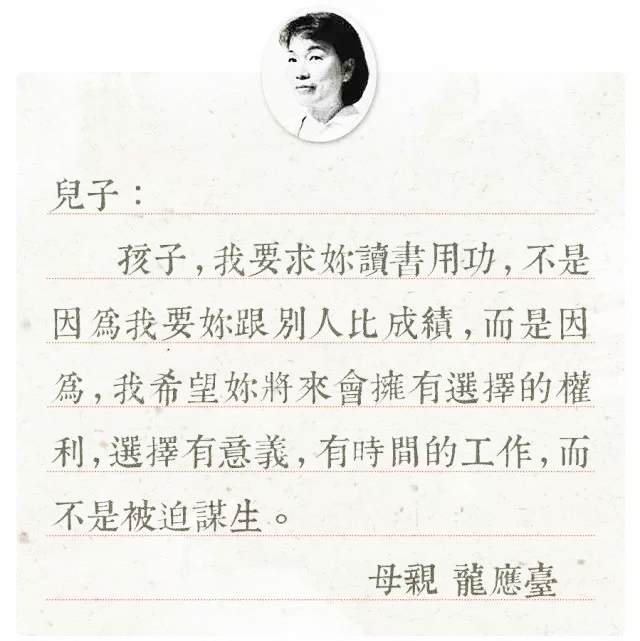 兒子：
孩子，我要求妳讀書用功，不是
因爲我要妳跟別人比成績，而是因
爲，我希望妳將來會擁有選擇的權
利，選擇有意義，有時間的工作，而
不是被迫謀生。
母親 龍應臺